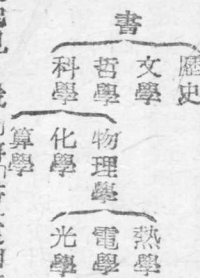 書
歷史
文學
哲學
科學
物理學
化學
算學
熱學
電學
光學